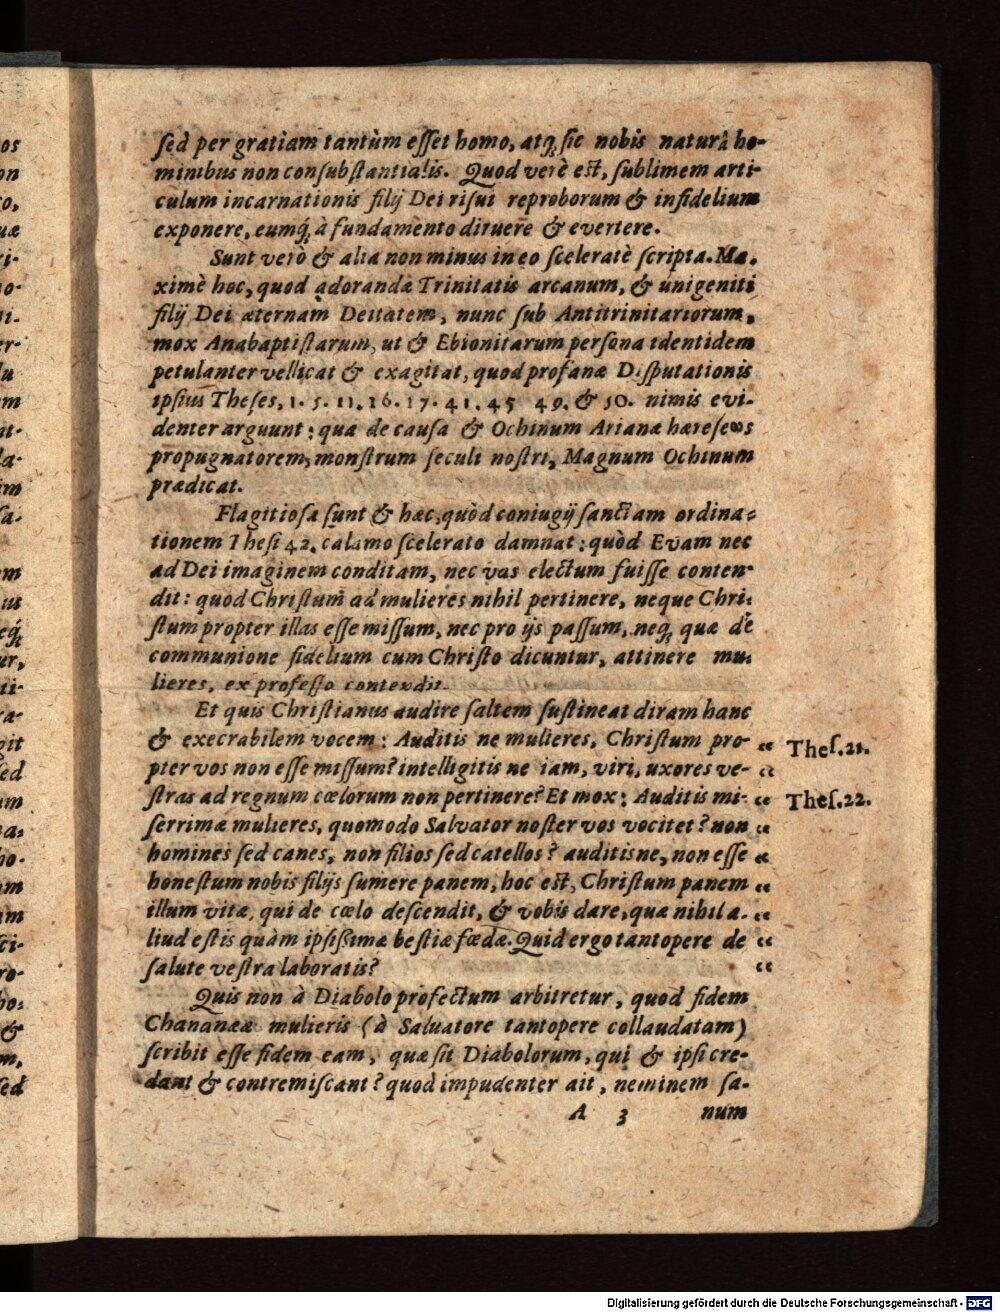 sed per gratiam tantùm esset homo, atq́; sic nobis naturâ ho-
minibus non consubstantialis. Quod verè est, sublimem arti-
culum incarnationis filij Dei risui reproborum & infidelium
exponere, eumq́; à fundamento diruere & evertere.
Sunt verò & alia non minus in eo sceleratè scripta. Ma-
ximè hoc, quod adorandæ Trinitatis arcanum, & unigeniti
filij Dei æternam Deitatem, nunc sub Antitrinitariorum,
mox Anabaptistarum, ut & Ebionitarum persona identidem
petulanter vellicat & exagitat, quod profanæ Disputationis
ipsius Theses, 1. 5. 11. 16. 17. 41. 45 49. & 50. nimis evi-
denter arguunt: qua de causa & Ochinum Arianæ hæreseωs
propugnatorem, monstrum seculi nostri, Magnum Ochinum
prædicat.
Flagitiosa sunt & hæc, quòd coniugij sanctiam ordina-
tionem Thesi 42. calamo scelerato damnat: quòd Evam nec
ad Dei imaginem conditam, nec vas electum fuisse conten-
dit: quod Christum ad mulieres nihil pertinere, neque Chri-
stum propter illas esse missum, nec pro ijs passum, neq́; quæ de
communione fidelium cum Christo dicuntur, attinere mu-
lieres, ex professo contendit.
Et quis Christianus audire saltem sustineat diram hanc
& execrabilem vocem: Auditis ne mulieres, Christum pro- “ Thes. 21.
pter vos non esse missum? intelligitis ne iam, viri, uxores ve- “
stras ad regnum cœlorum non pertinere? Et mox: Auditis mi- “ Thes. 22.
serrimæ mulieres, quomodo Salvator noster vos vocitet? non “
homines sed canes, non filios sed catellos? auditisne, non esse “
honestum nobis filijs sumere panem, hoc est, Christum panem “
illum vitæ, qui de cœlo descendit, & vobis dare, quæ nihil a- “
liud estis quàm ipsissimæ bestiæ fœdæ. Quid ergo tantopere de “
salute vestra laboratis? “
Quis non à Diabolo profectum arbitretur, quod fidem
Chananææ mulieris (à Salvatore tantopere collaudatam)
scribit esse fidem eam, quæ sit Diabolorum, qui & ipsi cre-
dant & contremiscant? quod impudenter ait, neminem sa-
A 3 num
os
on
to,
uæ
ri-
no-
ni-
er-
lu
m
at-
la-
im
sa-
em
ius
eq́;
ur,
ti-
ra-
git
sed
um
na-
ho-
am
um
sci-
ro-
ho-
&
m,
sed
Digitalisierung gefördert durch die Deutsche Forschungsgemeinschaft - DFG